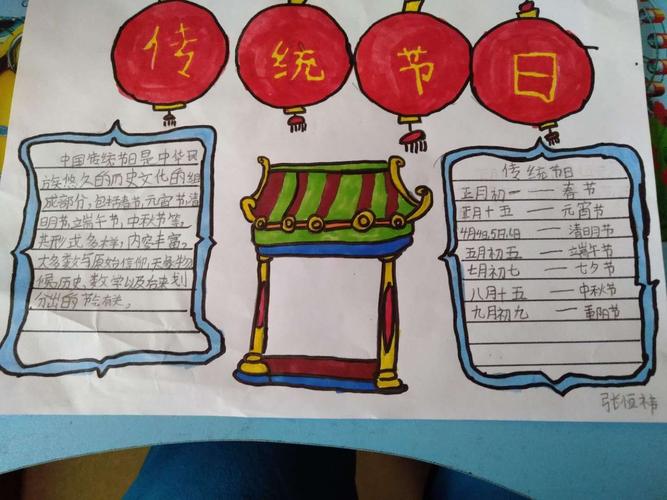 传统节日
中国传统节日是中华民
族悠久的历史文化的组
成部分，包括春节，元宵节，清
明节，立端午节，中秋节等。
其形式多样，内容丰富。
大多数与原始信仰，天
候，历史、数学以及后来划
分出的节气有关。
传统节日
正月初一——春节
正月十五——元宵节
4月4日，5日，6日——清明节
五月初五——立端午节
七月初七——七夕节
八月十五——中秋节
九月初九——重阳节
张恒祎